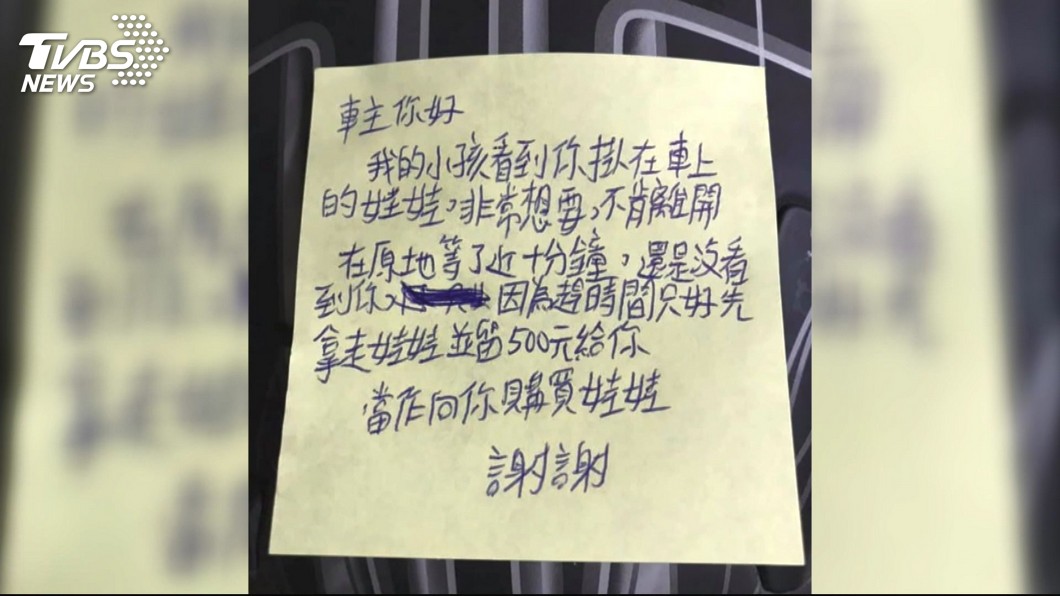 TVBS
NEWS
車主你好
我的小孩看到你掛在車上
的娃娃，非常想要，不肯離開
在原地等了近十分鐘，還是沒看
到你，因為趕時間只好先
拿走娃娃並留500元給你
當作向你購買娃娃
謝謝